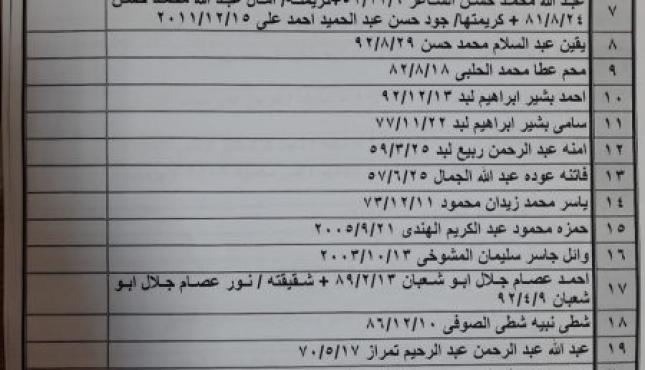 ٧ عبد الله محمد حسن الشاعر
٨١/٨/٢٤ + كريمتها/ جود حسن عبد الحميد احمد على ٢٠١١/١٢/١٥
٨ يقين عبد السلام محمد حسن ٩٢/٨/٢٩
٩ محم عطا محمد الحلبى ٨٢/٨/١٨
١٠ احمد بشير ابراهيم لبد ٩٢/١٢/١٣
١١ سامى بشير ابراهيم لبد ٧٧/١١/٢٢
١٢ امنه عبد الرحمن ربيع لبد ٥٩/٣/٢٥
١٣ فاتنه عوده عبد الله الجمال ٥٧/٦/٢٥
١٤ ياسر محمد زيدان محمود ٧٣/١٢/١١
١٥ حمزه محمود عبد الكريم الهندى ٢٠٠٥/٩/٢١
١٦ وائل جاسر سليمان المشوخى ٢٠٠٣/١٠/١٣
١٧ احمد عصام جلال ابو شعبان ٨٩/٢/١٣ + شقيقته / نور عصام جلال ابو
شعبان ٩٢/٤/٩
١٨ شطى نبيه شطى الصوفى ٨٦/١٢/١٠
١٩ عبد الله عبد الرحمن عبد الرحيم تمراز ٧٠/٥/١٧